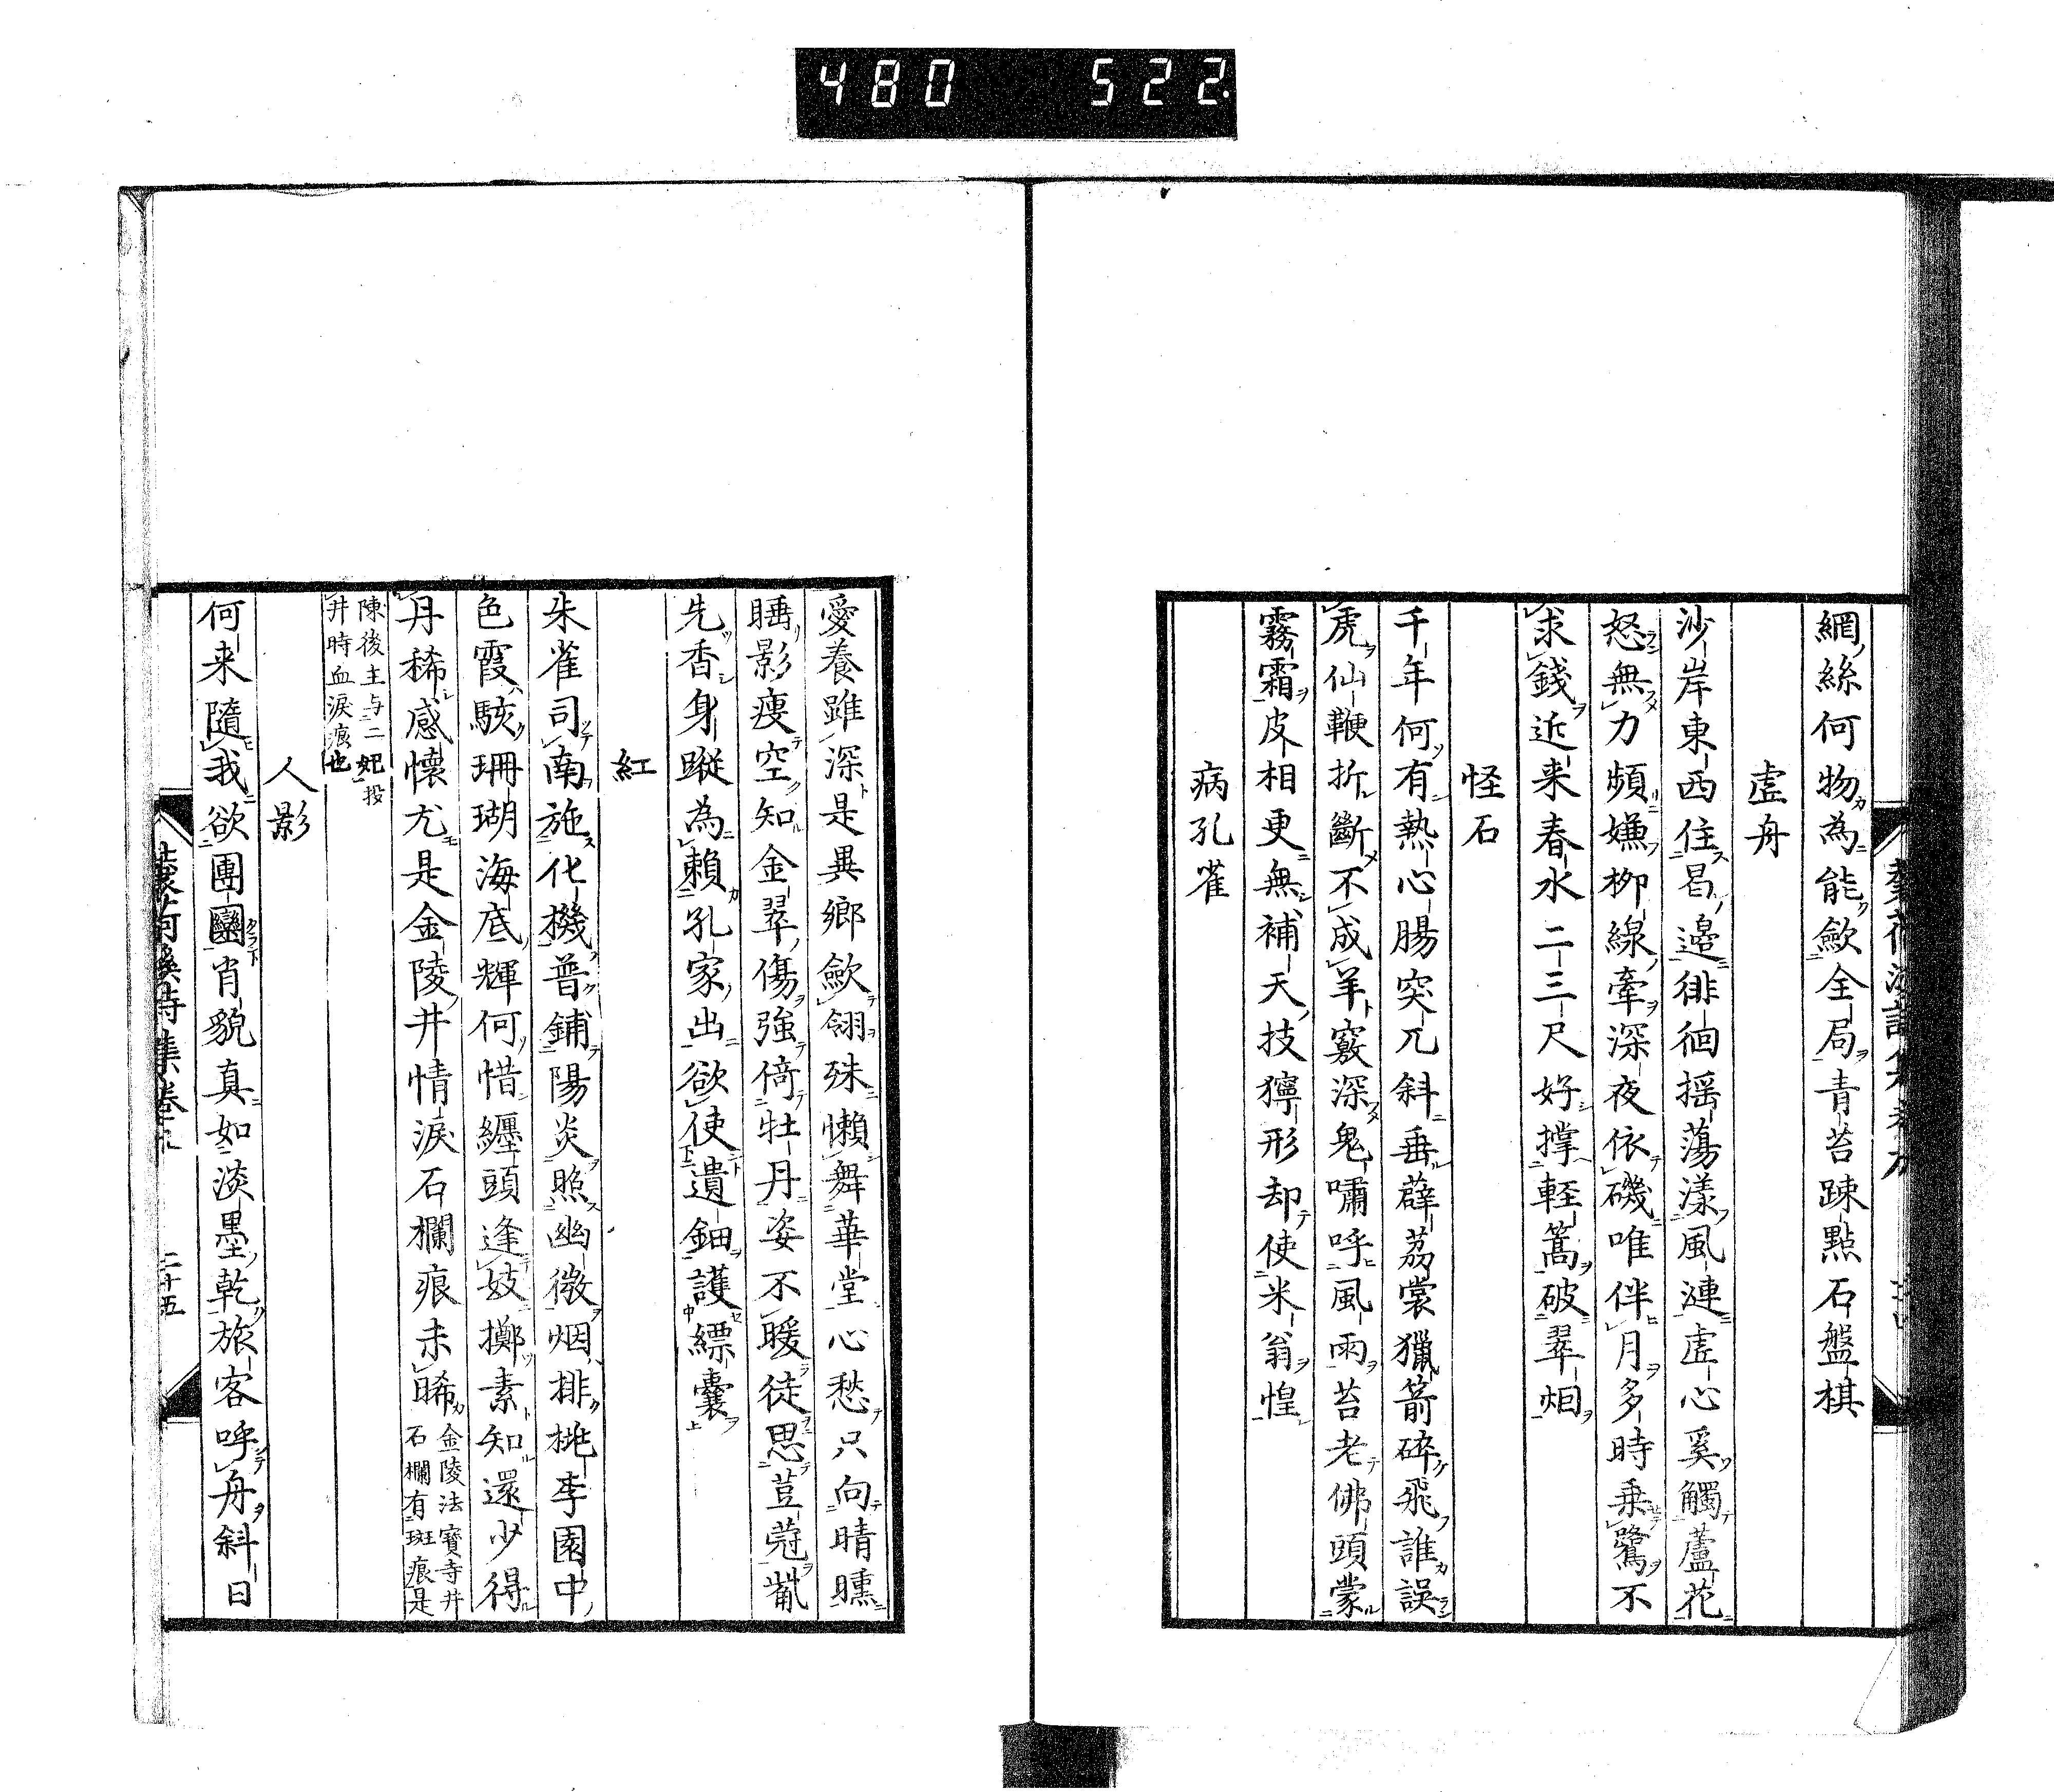 480 522
網絲何物為能歛全局青苔踈點石盤棋
虛舟
沙岸東西住曷邊徘徊揺蕩漾風漣虛心奚觸蘆花
怒無力頻嫌柳線牽深夜依磯唯伴月多時乗鷺不
求錢近来春水二三尺好撑軽篙破翠烟
怪石
千年何有熱心腸突兀斜垂薜荔裳獵箭碎飛誰誤
虎仙鞭折斷不成羊竅深鬼嘯呼風雨苔老佛頭蒙
霧霜皮相更無補天技獰形却使米翁惶
病孔雀
愛養雖深是異鄉歛翎殊懶舞華堂心愁只向晴曛
睡影瘦空知金翠傷強倚牡丹姿不暖徒思荳蔲
先香身蹤為賴孔家出欲使遺鈿護縹囊
紅
朱雀司南施化機普鋪陽炎照幽微烟排桃李園中
色霞駭珊瑚海底輝何惜纏頭逢妓擲素知還少得
丹稀感懷尤是金陵井情淚石欄痕未晞 金陵法寶寺井
石欄有斑痕是
陳後主与二妃投
井時血淚痕也
人影
何来隨我欲團圞肖貌真如淡墨乾旅客呼舟斜日
二十五